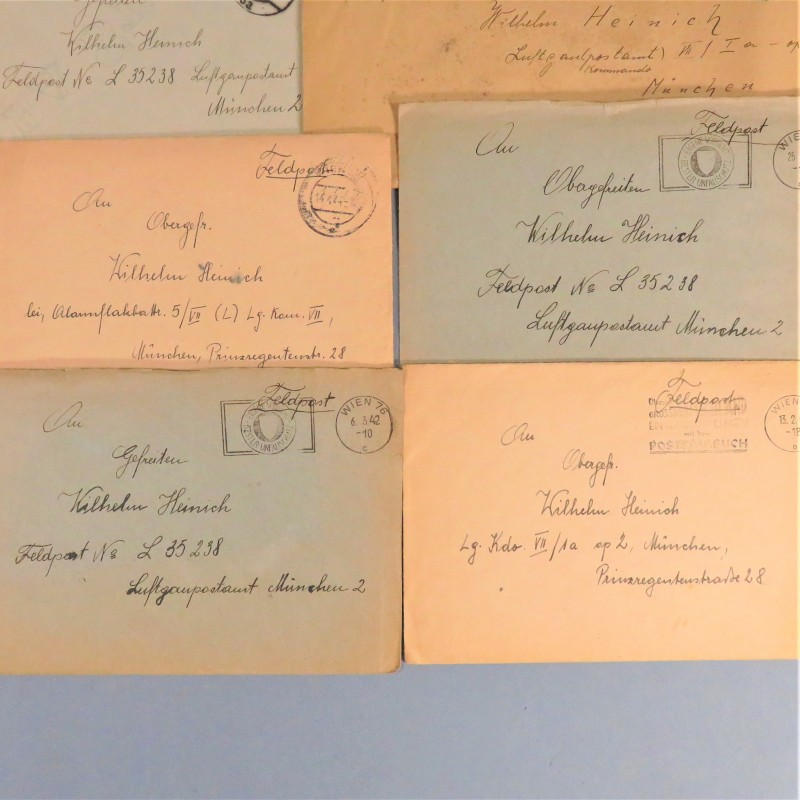 Gefreiten
Wilhelm Heinich
Feldpost No L 35238 Luftgaupostamt
München 2
Wilhelm Heinich
Luftgaupostamt) VII/Ia-op
Kommando
München
Feldpost
An
Obergefr.
Wilhelm Heinich
bei, Alarmflakbattr. 5/VII (L) Lg. Kom. VII,
München, Prinzregentenstr. 28
Feldpost
WIEN
25
An
Obagefreiten
Wilhelm Heinich
Feldpost No L 35238
Luftgaupostamt München 2
Feldpost
WIEN 76
6. 3. 42
-10
c
An
Gefreiten
Wilhelm Heinich
Feldpost No L 35238
Luftgaupostamt München 2
Feldpost
POSTSPARBUCH
WIEN
13. 2.
-18
An
Obergefr.
Wilhelm Heinich
Lg. Kdo. VII/1a op 2, München,
Prinzregentenstraße 28